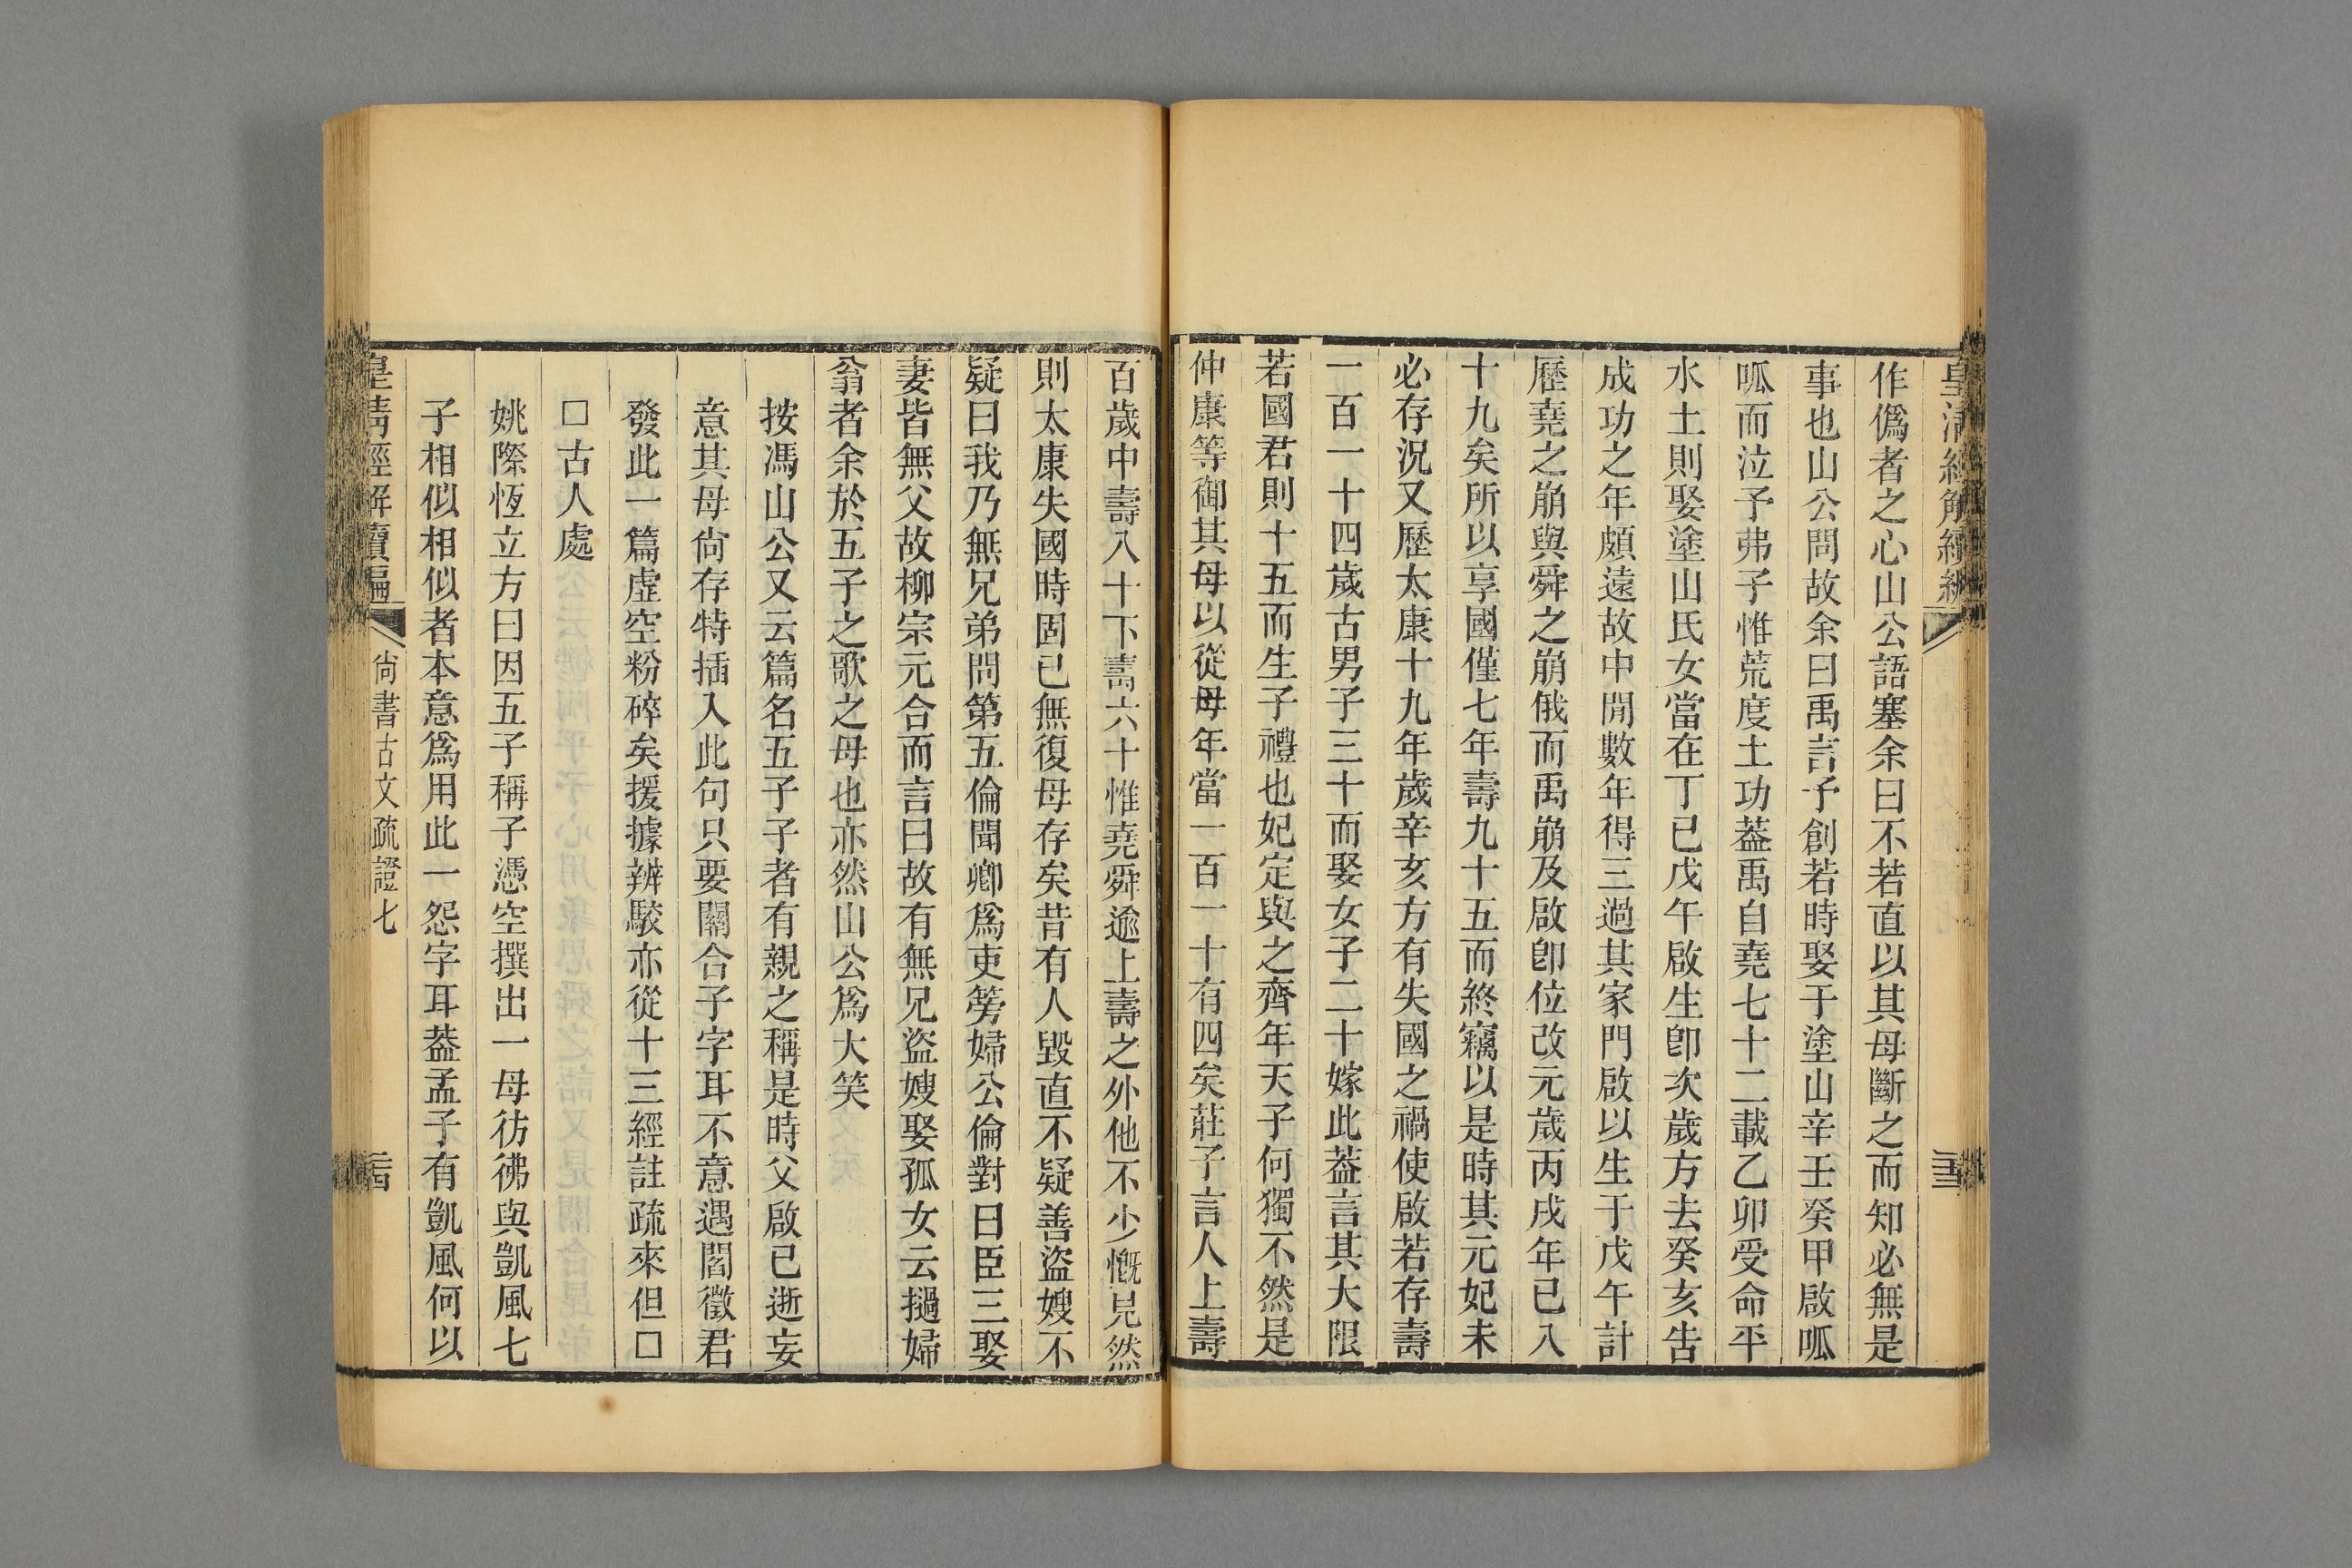 皇清經解續編
作僞者之心山公語塞余曰不若直以其母斷之而知必無是
事也山公問故余曰禹言予創若時娶于塗山辛壬癸甲啟呱
呱而泣予弗子惟荒度土功蓋禹自堯七十二載乙卯受命平
水土則娶塗山氏女當在丁巳戊午啟生卽次歲方去癸亥告
成功之年頗遠故中閒數年得三過其家門啟以生于戊午計
歷堯之崩與舜之崩俄而禹崩及啟卽位改元歲丙戌年已八
十九矣所以享國僅七年壽九十五而終竊以是時其元妃未
必存況又歷太康十九年歲辛亥方有失國之禍使啟若存壽
一百一十四歲古男子三十而娶女子二十嫁此蓋言其大限
若國君則十五而生子禮也妃定與之齊年天子何獨不然是
仲康等御其母以從母年當一百一十有四矣莊子言人上壽
百歲中壽八十下壽六十惟堯舜逾上壽之外他不少慨見然
則太康失國時固已無復母存矣昔有人毀直不疑善盜嫂不
疑曰我乃無兄弟問第五倫聞卿爲吏篣婦公倫對曰臣三娶
妻皆無父故柳宗元合而言曰故有無兄盜嫂娶孤女云撾婦
翁者余於五子之歌之母也亦然山公爲大笑
按馮山公又云篇名五子子者有親之稱是時父啟已逝妄
意其母尙存特插入此句只要關合子字耳不意遇閻徵君
發此一篇虛空粉碎矣援據辨駁亦從十三經註疏來但□
□古人處
姚際恆立方曰因五子稱子憑空撰出一母彷彿與凱風七
子相似相似者本意爲用此一怨字耳蓋孟子有凱風何以
皇清經解續編 尙書古文疏證七 三四